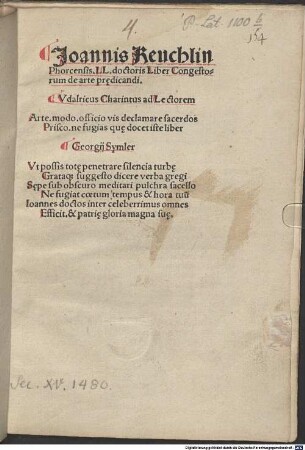 4.
¶Joannis Reuchlin
Phorcensis.LL.doctoris Liber Congesto-
rum de arte prędicandi.
¶Vdalricus Charintus ad Lectorem
Arte.modo.officio vis declamare sacerdos
Prisco.ne fugias quę docet iste liber
¶Georgij Symler
Vt possis totę penetrare silencia turbę
Grataqꝫ suggesto dicere verba gregi
Sępe sub obscuro meditari pulchra sacello
Ne fugiat cœtum tempus & hora tuū
Ioannes doctos inter celeberrimus omnes
Efficit.& patrię gloria magna suę.
Sec. XV. 1480.